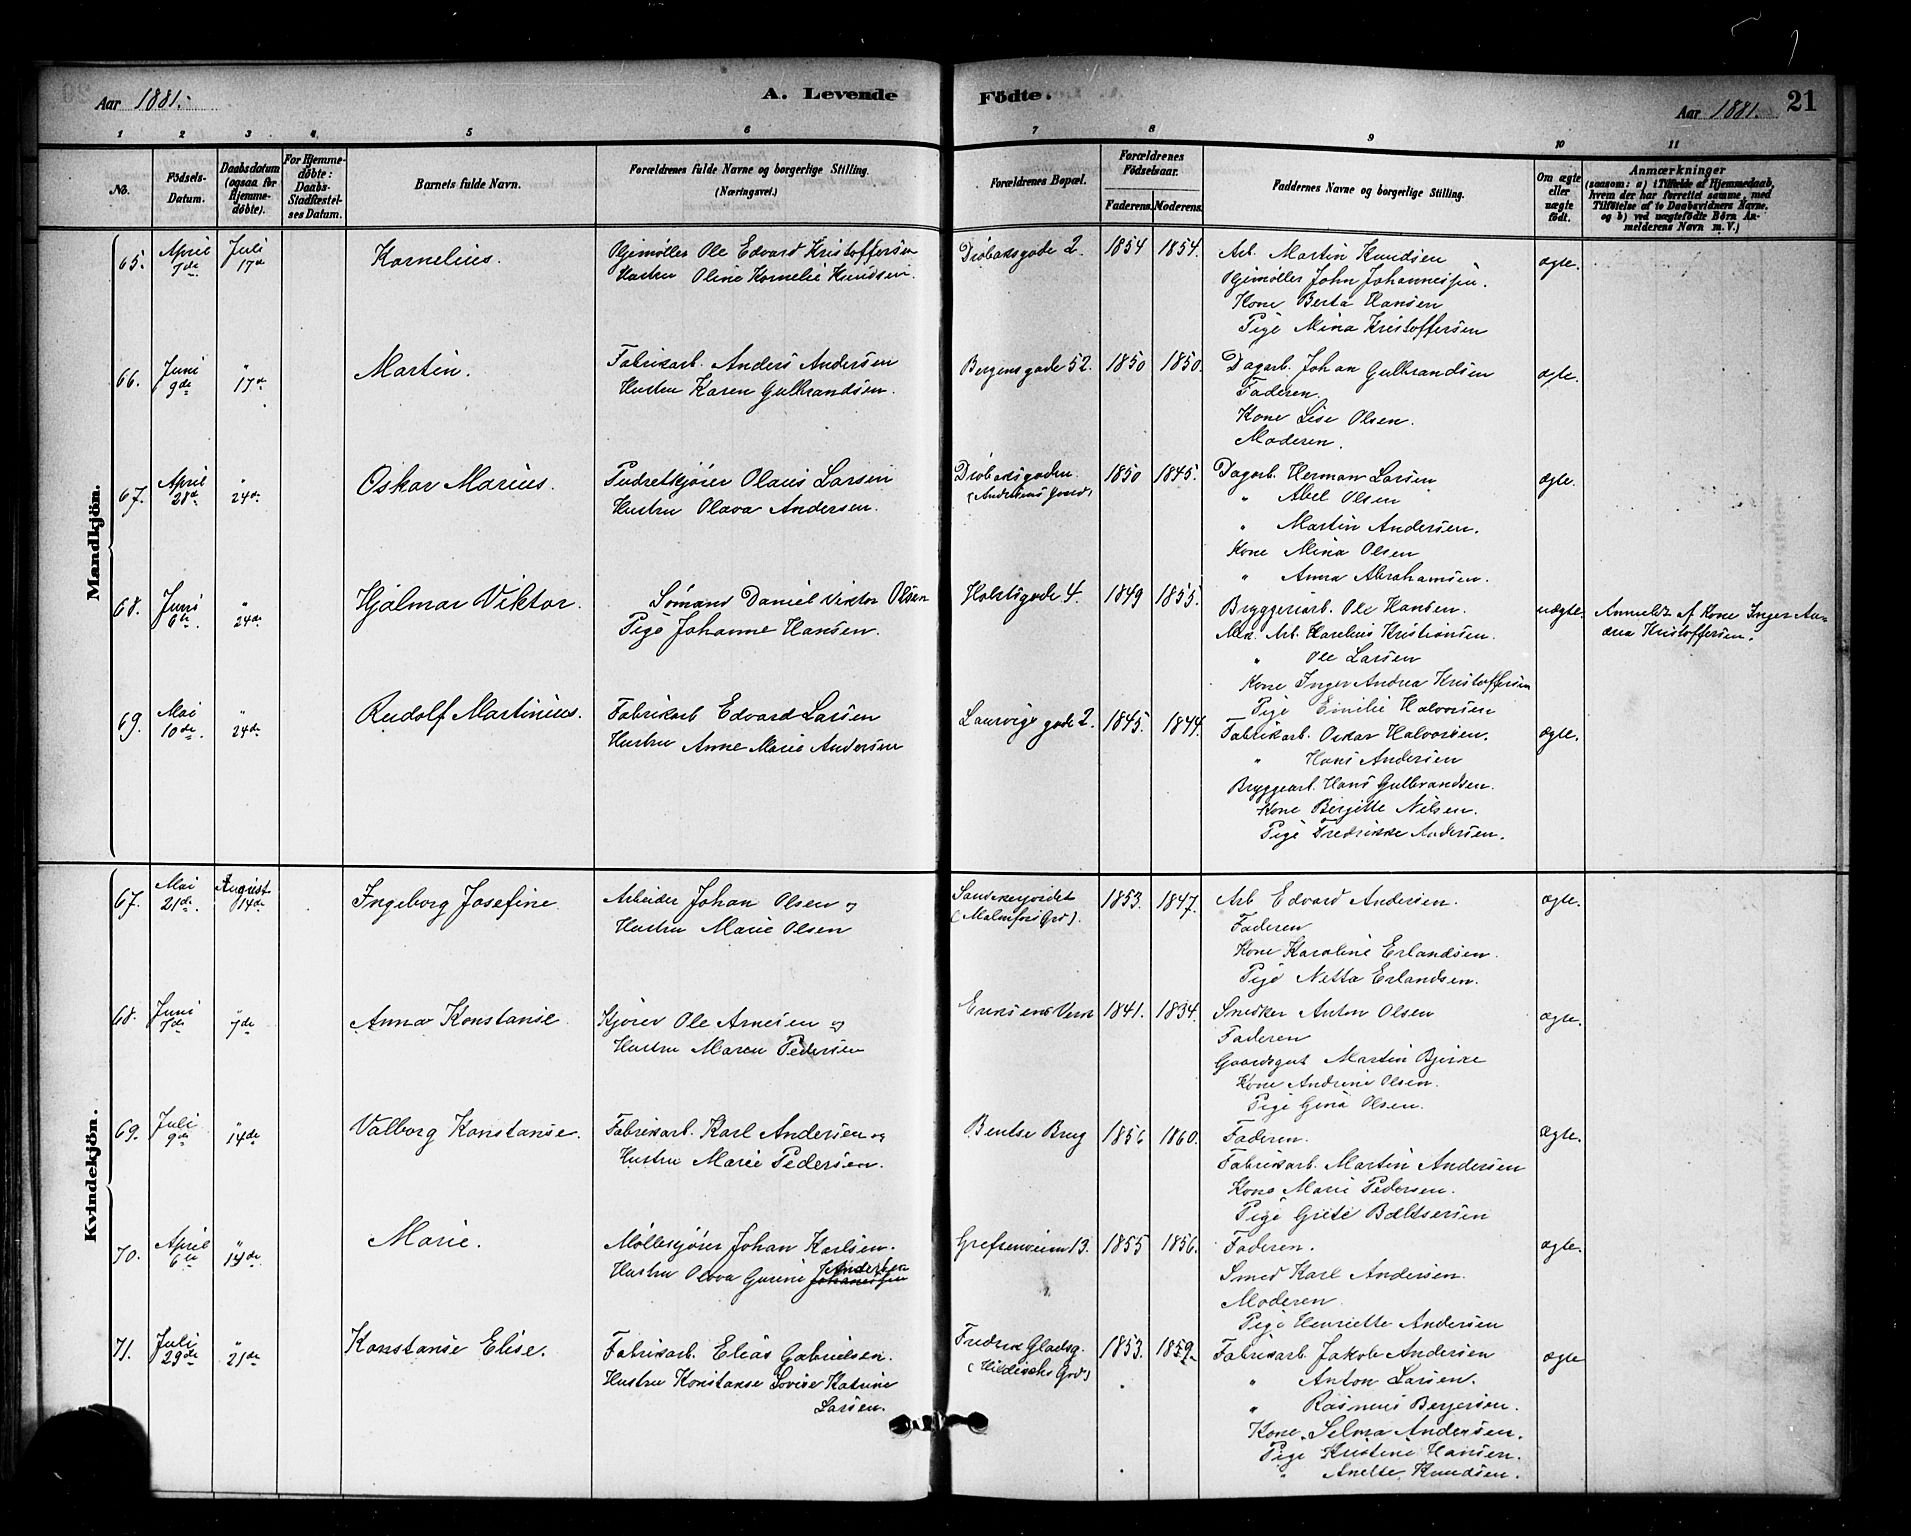 Aar 1881.
A. Levende Födte.
Aar 1881.
21
1 2 3 4 5 6 7 8 9 10 11
No.
Födsels-
Datum.
Daabsdatum
(ogsaa for
Hjemme-
döbte).
For Hjemme-
döbte:
Daabs-
Stadfæstel-
ses Datum.
Barnets fulde Navn.
Forældrenes fulde Navne og borgerlige Stilling.
(Næringsvei.)
Forældrenes Bopæl.
Forældrenes
Födselsaar.
Faderens.
Moderens.
Faddernes Navne og borgerlige Stilling.
Om ægte
eller
uægte
födt.
Anmærkninger
(saasom: a) i Tilfælde af Hjemmedaab,
hvem der har forrettet samme, med
Tilföielse af to Daabsvidners Navne,
og b) ved uægtefödte Börn An-
melderens Navn m. V.)
Mandkjön.
65.
April
7de
Juli
17de
Kornelius.
Oljemøller Ole Edvard Kristoffersen
Hustru Oline Kornelie Knudsen.
Drøbaksgade 2.
1854
1854.
Arb. Martin Knudsen
Oljemøller John Johannessen.
Kone Berta Hansen
Pige Mina Kristoffersen
ægte.
66.
Juni
9de
"
17de
Martin.
Fabrikarb. Anders Andersen
Hustru Karen Gulbrandsen.
Bergensgade 52.
1850
1850.
Dagarb. Johan Gulbrandsen
Faderen.
Kone Lise Olsen.
Moderen.
ægte.
67.
April
28de
"
24de
Oskar Marius.
Pudretkjører Olaus Larsen
Hustru Olava Andersen.
Drøbaksgaden
(Andersens Gaard)
1850
1845.
Dagarb. Herman Larsen
" Abel Olsen
" Martin Andersen.
Kone Mina Olsen
" Anna Abrahamsen.
ægte.
68.
Juni
6te
"
24de
Hjalmar Viktor.
Sømand Daniel Viktor Olsen
Pige Johanne Hansen.
Holstsgade 4.
1849
1855.
Bryggeriarb. Ole Hansen.
Mek. Arb. Karelius Kristiansen.
" Ole Larsen
Kone Inger Andrea Kristoffersen
Pige Emilie Halvorsen
uægte.
Anmeldt af Kone Inger An-
drea Kristoffersen.
69.
Mai
10de
"
24de
Rudolf Martinius.
Fabrikarb Edvard Larsen
Hustru Anne Marie Andersen
Laurvigs gade 2.
1845.
1844.
Fabrikarb. Oskar Halvorsen.
" Hans Andersen
Bryggearb. Hans Gulbrandsen.
Kone Bergitte Nilsen.
Pige Fredrikke Andersen.
ægte.
Kvindekjön.
67.
Mai
21de
August
14de
Ingeborg Josefine
Arbeider Johan Olsen og
Hustru Marie Olsen
Sandakerjordet
(Malmfos Grd).
1853.
1847.
Arb Edvard Andersen.
Faderen
Kone Karoline Erlandsen.
Pige Netta Erlandsen.
ægte.
68.
Juni
7de
"
7de
Anna Konstanse
Kjører Ole Arnesen og
Hustru Maren Pedersen
1841.
1834.
Snedker Anton Olsen
Faderen
Gaardsgut Martin Bjerke
Kone Andrine Olsen.
Pige Gina Olsen.
ægte.
69.
Juli
9de
"
14de
Valborg Konstanse.
Fabrikarb. Karl Andersen og
Hustru Marie Pedersen.
Bentse Brug
1856
1860.
Faderen.
Fabrikarb. Martin Andersen
Kone Marie Pedersen.
Pige Grete Baltsersen
ægte.
70.
April
6te
"
14de
Marie.
Møllekjører Johan Karlsen.
Hustru Olava Gurine Johannessen Andersen
Grefsenveien 13.
1855
1856.
Faderen.
Smed Karl Andersen.
Moderen
Pige Henriette Andersen
ægte.
71.
Juli
29de
"
21de
Konstanse Elise.
Fabrikarb. Elias Gabrielsen.
Hustru Konstanse Lovise Katrine
Larsen.
Fredrik Gladsg.
(Hildischs Grd)
1853.
1859.
Fabrikarb. Jakob Andersen
" Anton Larsen.
" Rasmus Bergersen.
Kone Selma Andersen.
Pige Kristine Hansen.
" Anette Knudsen.
ægte